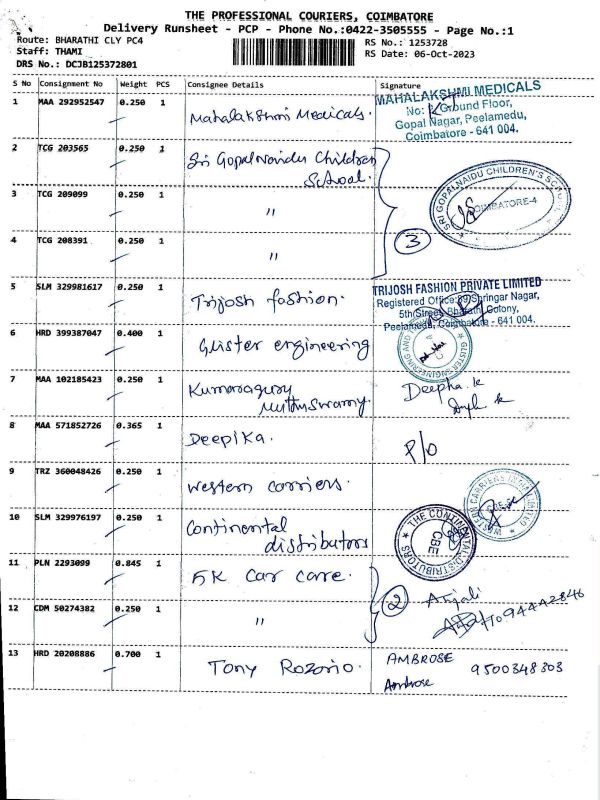 THE PROFESSIONAL COURIERS, COIMBATORE
Delivery Runsheet - PCP - Phone No.:0422-3505555 - Page No.:1
Route: BHARATHI CLY PC4
RS No.: 1253728
Staff: THAMI
RS Date: 06-Oct-2023
DRS No.: DCJB125372801
S No Consignment No Weight PCS Consignee Details Signature
1 MAA 292952547 0.250 1 Mahalakshmi Medicals.
MAHALAKSHMI MEDICALS
No: Ground Floor,
Gopal Nagar, Peelamedu,
Coimbatore - 641 004.
2 TCG 203565 0.250 1 Sri Gopalnaidu Children
School.
3 TCG 209099 0.250 1 "
SRI GOPALNAIDU CHILDREN'S SCHOOL
COIMBATORE-4
4 TCG 208391 0.250 1 "
3
5 SLM 329981617 0.250 1 Trijosh fashion.
TRIJOSH FASHION PRIVATE LIMITED
Registered Office:89/Shringar Nagar,
5th Street, Bharathi Colony,
Peelamedu, Coimbatore - 641 004.
6 HRD 399387047 0.400 1 Glister engineering
GLISTER ENGINEERING AND
7 MAA 102185423 0.250 1 Kumaragury
Muthuswamy.
Deepha.k
8 MAA 571852726 0.365 1 Deepika.
P/O
9 TRZ 360048426 0.250 1 Western carriers.
WESTERN CARRIERS INDIA LIMITED
CBE
10 SLM 329976197 0.250 1 Continental
distributors
THE CONTINENTAL DISTRIBUTORS
CBE
11 PLN 2293099 0.845 1 5K Car care.
2
Anjali
12 CDM 50274382 0.250 1 "
13 HRD 20208886 0.700 1 Tony Rozario.
AMBROSE
9500348303
Ambrose